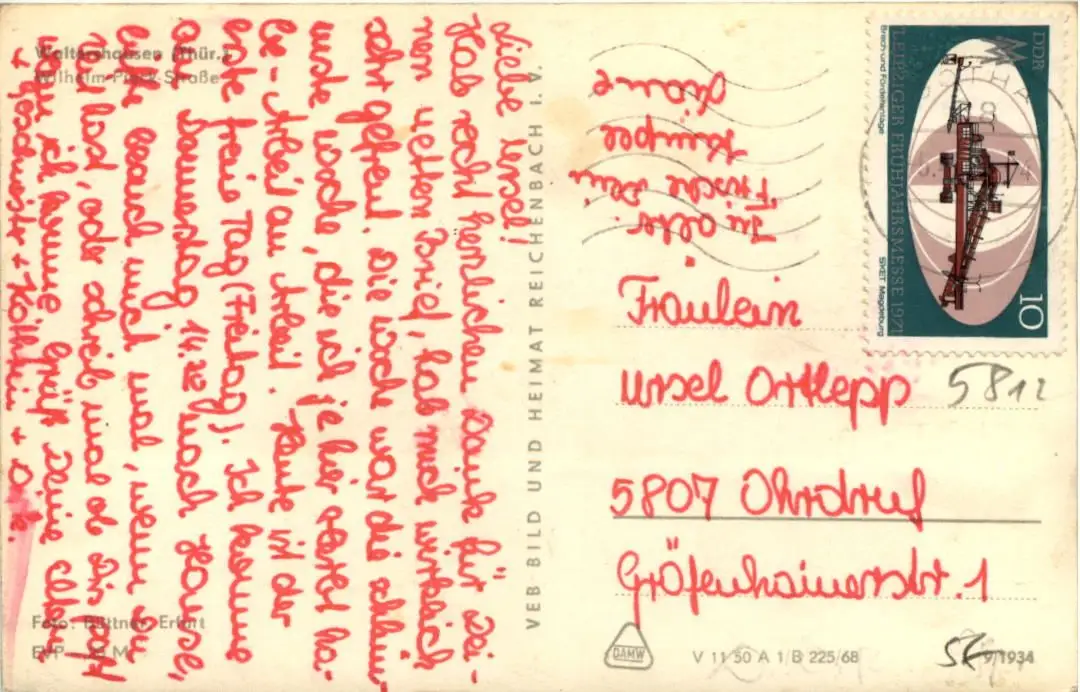 Waltershausen (Thür.)
Wilhelm-Pieck-Straße
Liebe Ursel!
Hab recht herzlichen Dank für Dei-
nen netten Brief, hab mich wirklich
sehr gefreut. Die Woche war die schlim-
mste Woche, die ich je hier erlebt ha-
be - Arbeit an Arbeit. Heute ist der
erste freie Tag (Freitag). Ich komme
am Donnerstag nach Hause,
bitte besuch mich mal, wenn du
Zeit hast, oder schreib mal ob Dir's paßt
wenn ich komme. Grüß Deine Eltern
+ Geschwister +
In alter
Frische Dein
Kumpel
Foto: Büttner, Erfurt
EVP M
VEB BILD UND HEIMAT REICHENBACH i. V.
DDR
LEIPZIGER FRÜHJAHRSMESSE 1971
Brech- und Förderanlage
SKET Magdeburg
10
GOTHA
Fräulein
Ursel Ortlepp 5812
5807 Ohrdruf
Gräfenhainerstr. 1
DAMW
V 11 50 A 1/B 225/68
9/1934